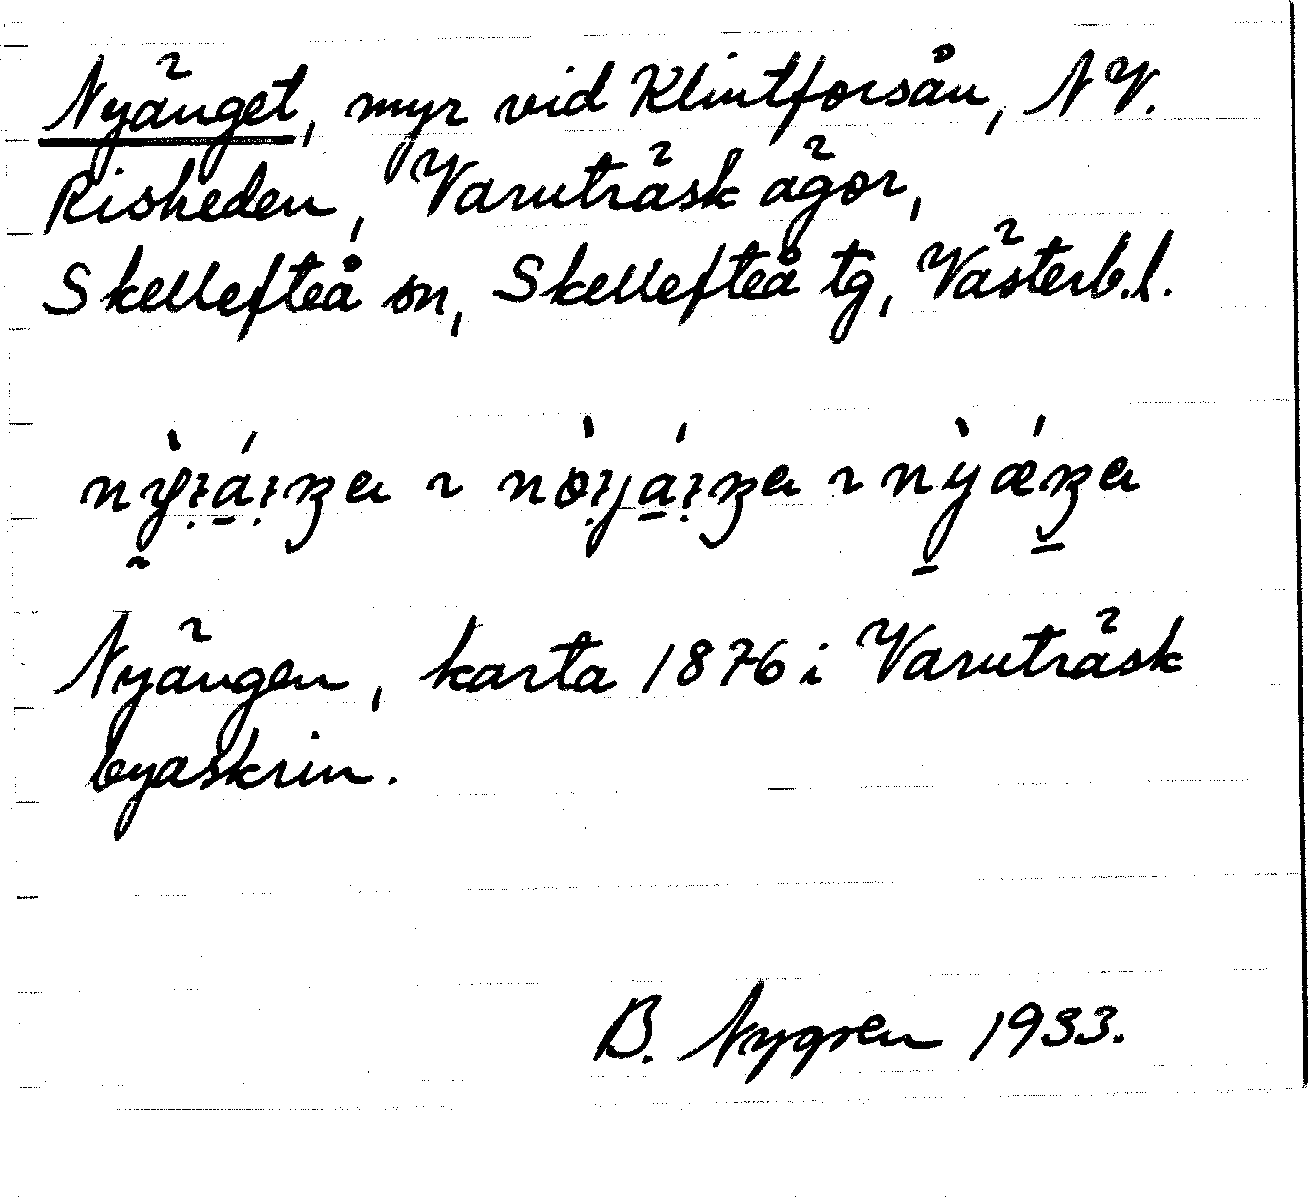 Nyänget, myr vid Klintforsån, NV.
Risheden, Varuträsk ägor,
Skellefteå sn, Skellefteå tg, Västerb.l.
Nyängen, karta 1876 i Varuträsk
byaskrin.
B. Nygren 1933.